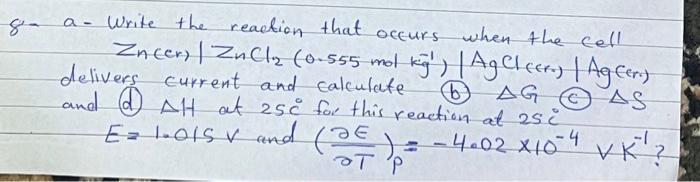 8- a- Write the reaction that occurs when the cell
Zn(cr) | ZnCl₂ (0.555 mol kg⁻¹) | AgCl(cr) | Ag(cr)
delivers current and calculate ⓑ ΔG ⓒ ΔS
and ⓓ ΔH at 25c° for this reaction at 25c°
E = 1.015 V and (∂E/∂T)_P = -4.02 x10⁻⁴ V K⁻¹?